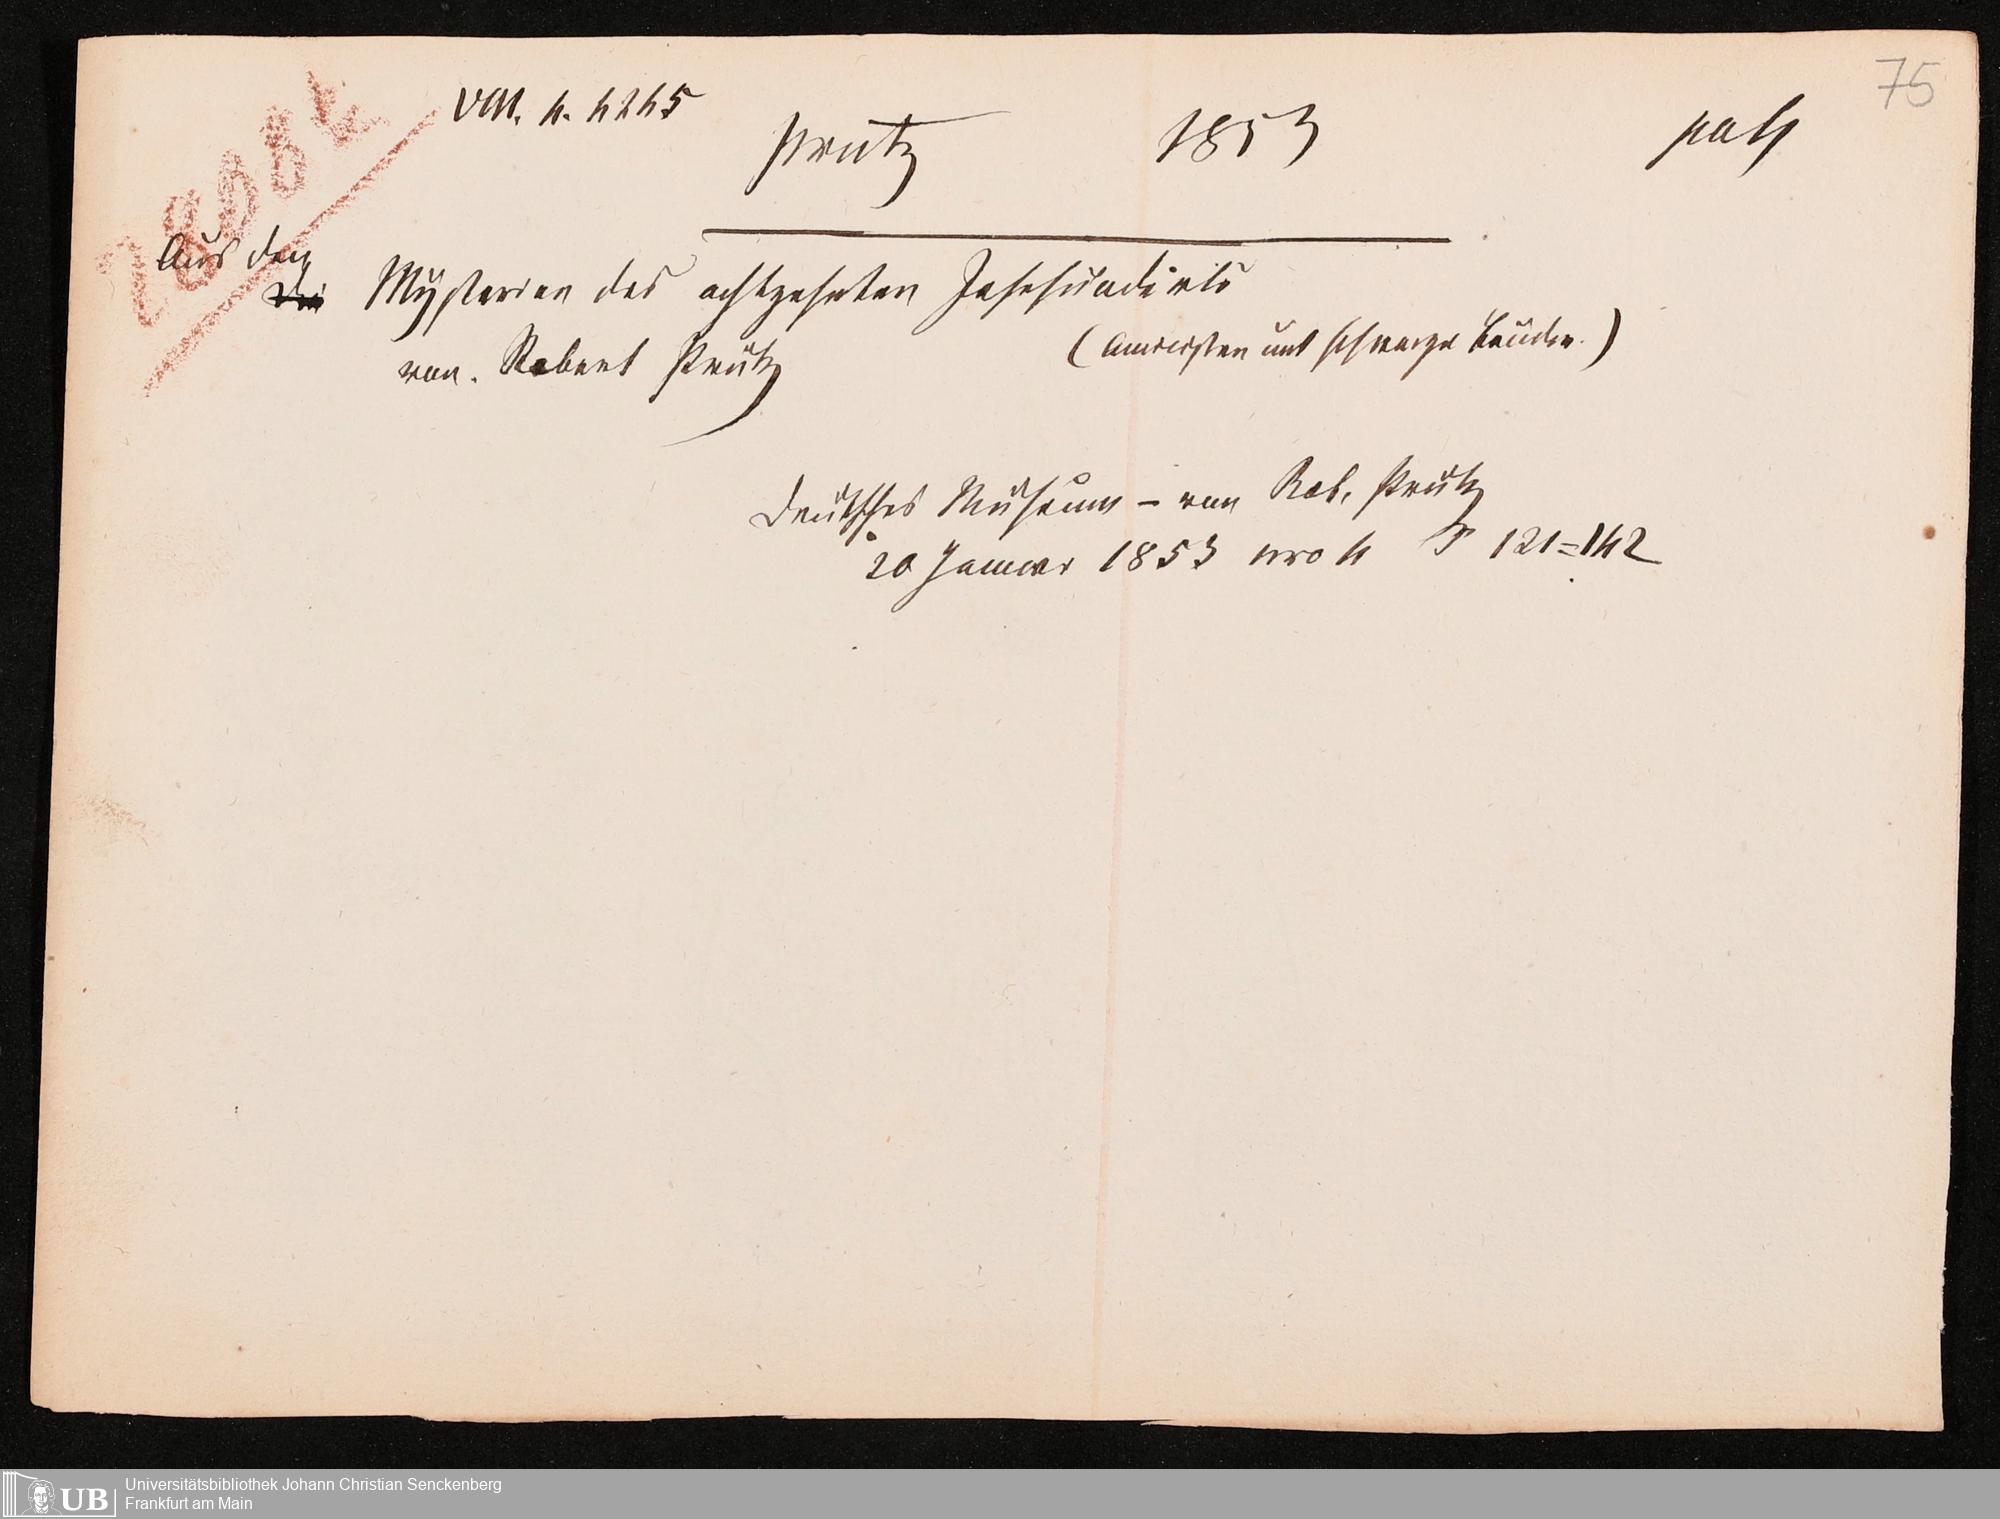 75
VIII. 4. 4245
Prutz 1853
Aus den
Mysterien des achtzehnten Jahrhunderts
von. Robert Prutz (Amicisten und schwarze Brüder.)
Deutsches Museum – von Rob. Prutz
20 Januar 1853 nro 4 S 121=142
Universitätsbibliothek Johann Christian Senckenberg
Frankfurt am Main
UB